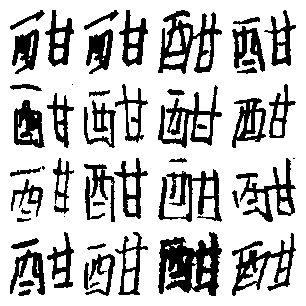 酣酣酣酣
酣酣酣酣
酣酣酣酣
酣酣酣酣